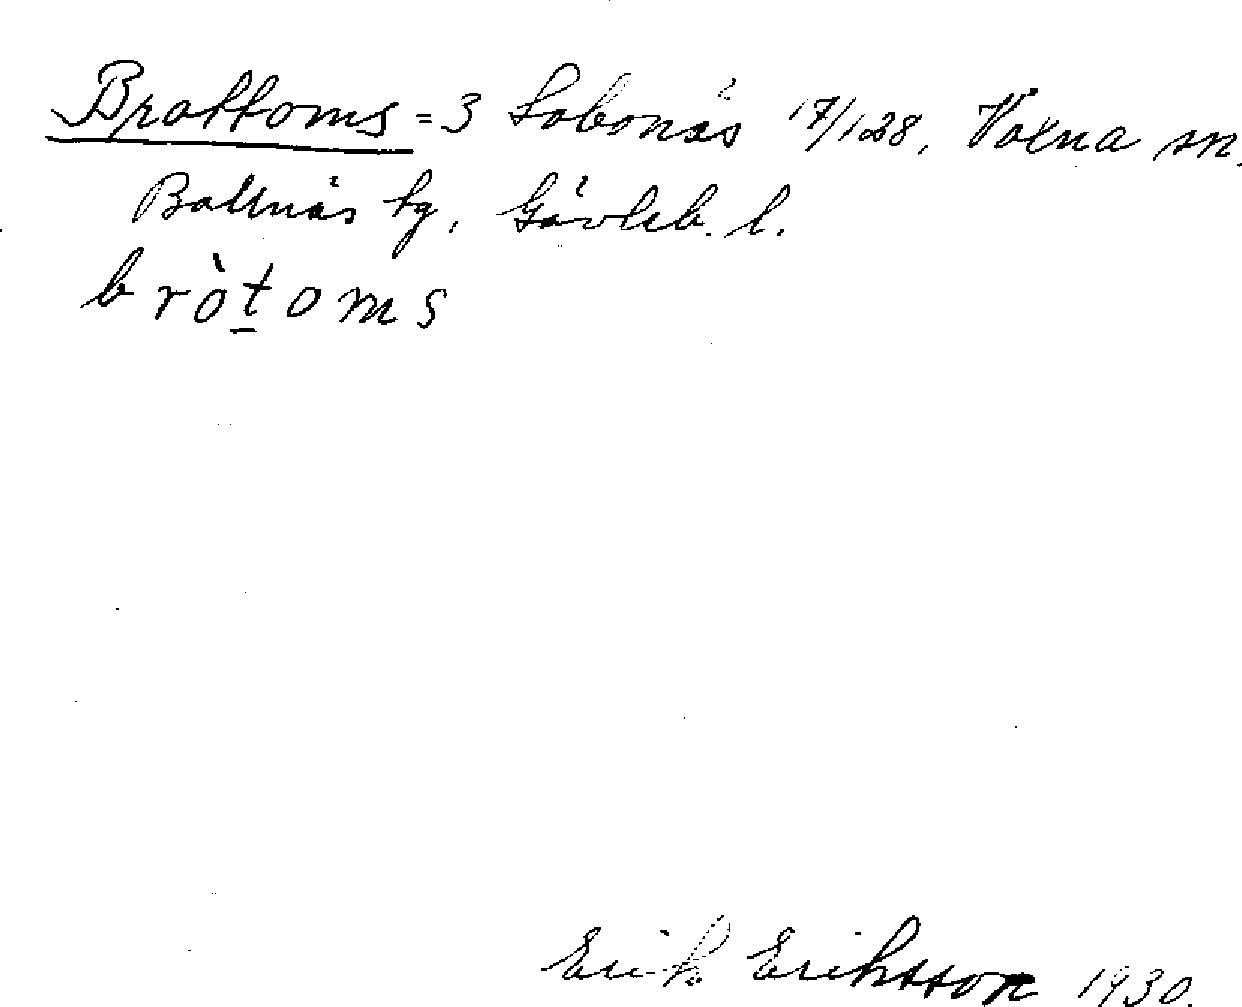 Brottoms = 3 Lobonäs 17/128, Voxna sn.
Bollnäs tg, Gävleb. l.
bròt̲oms
Erik Eriksson 1930.